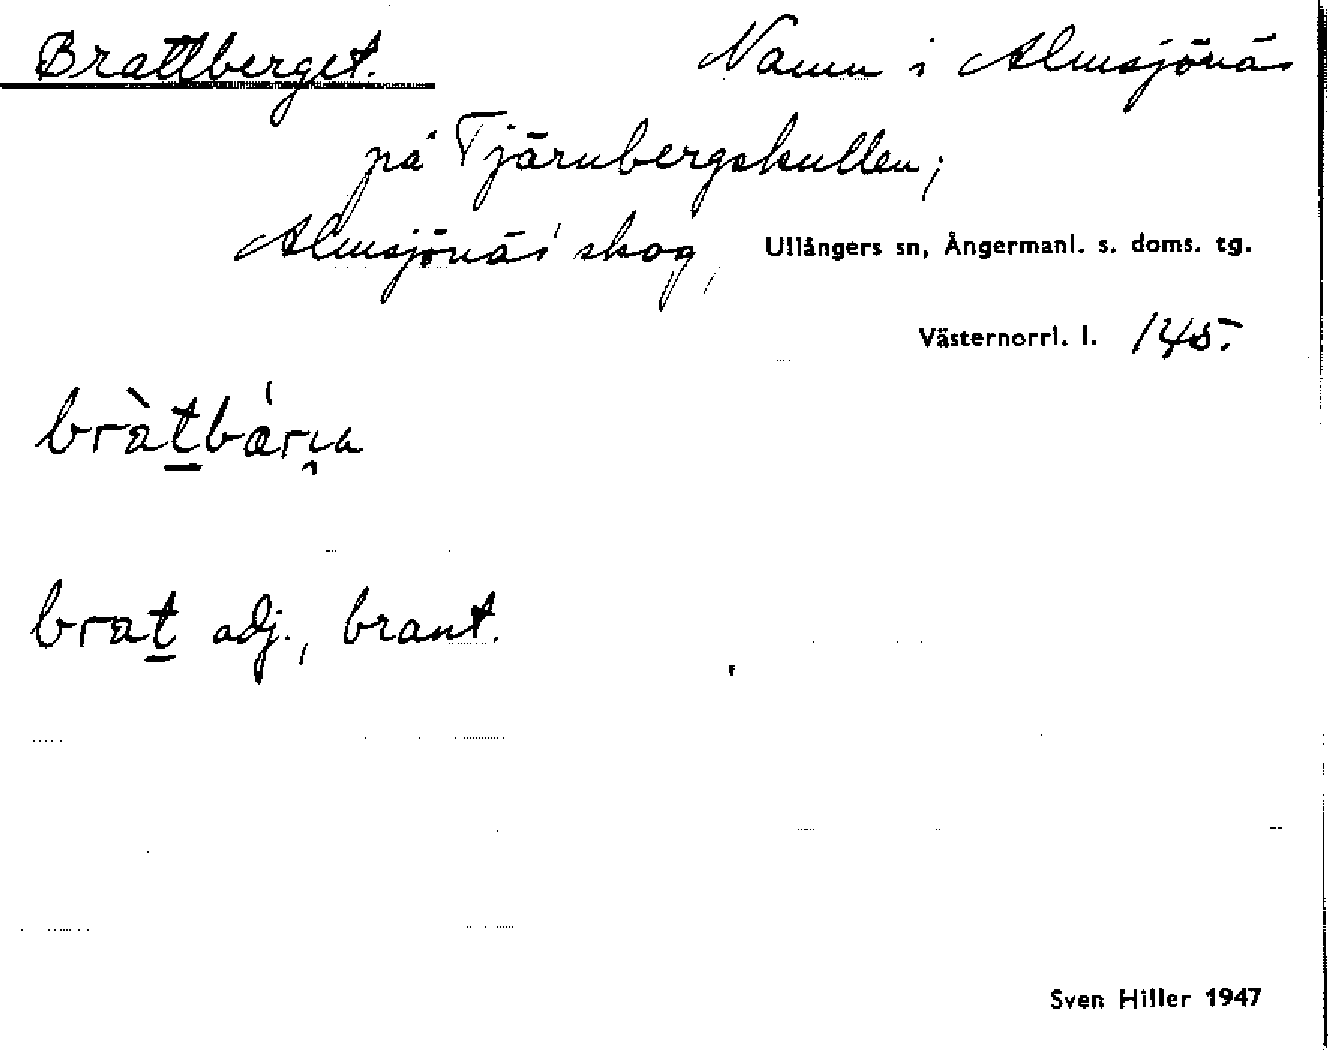 Brattberget. Namn i Almsjönäs
på Tjärnbergskullen;
Almsjönäs' skog, Ullångers sn, Ångermanl. s. doms. tg.
Västernorrl. l. 145.
brat adj., brant.
Sven Hiller 1947